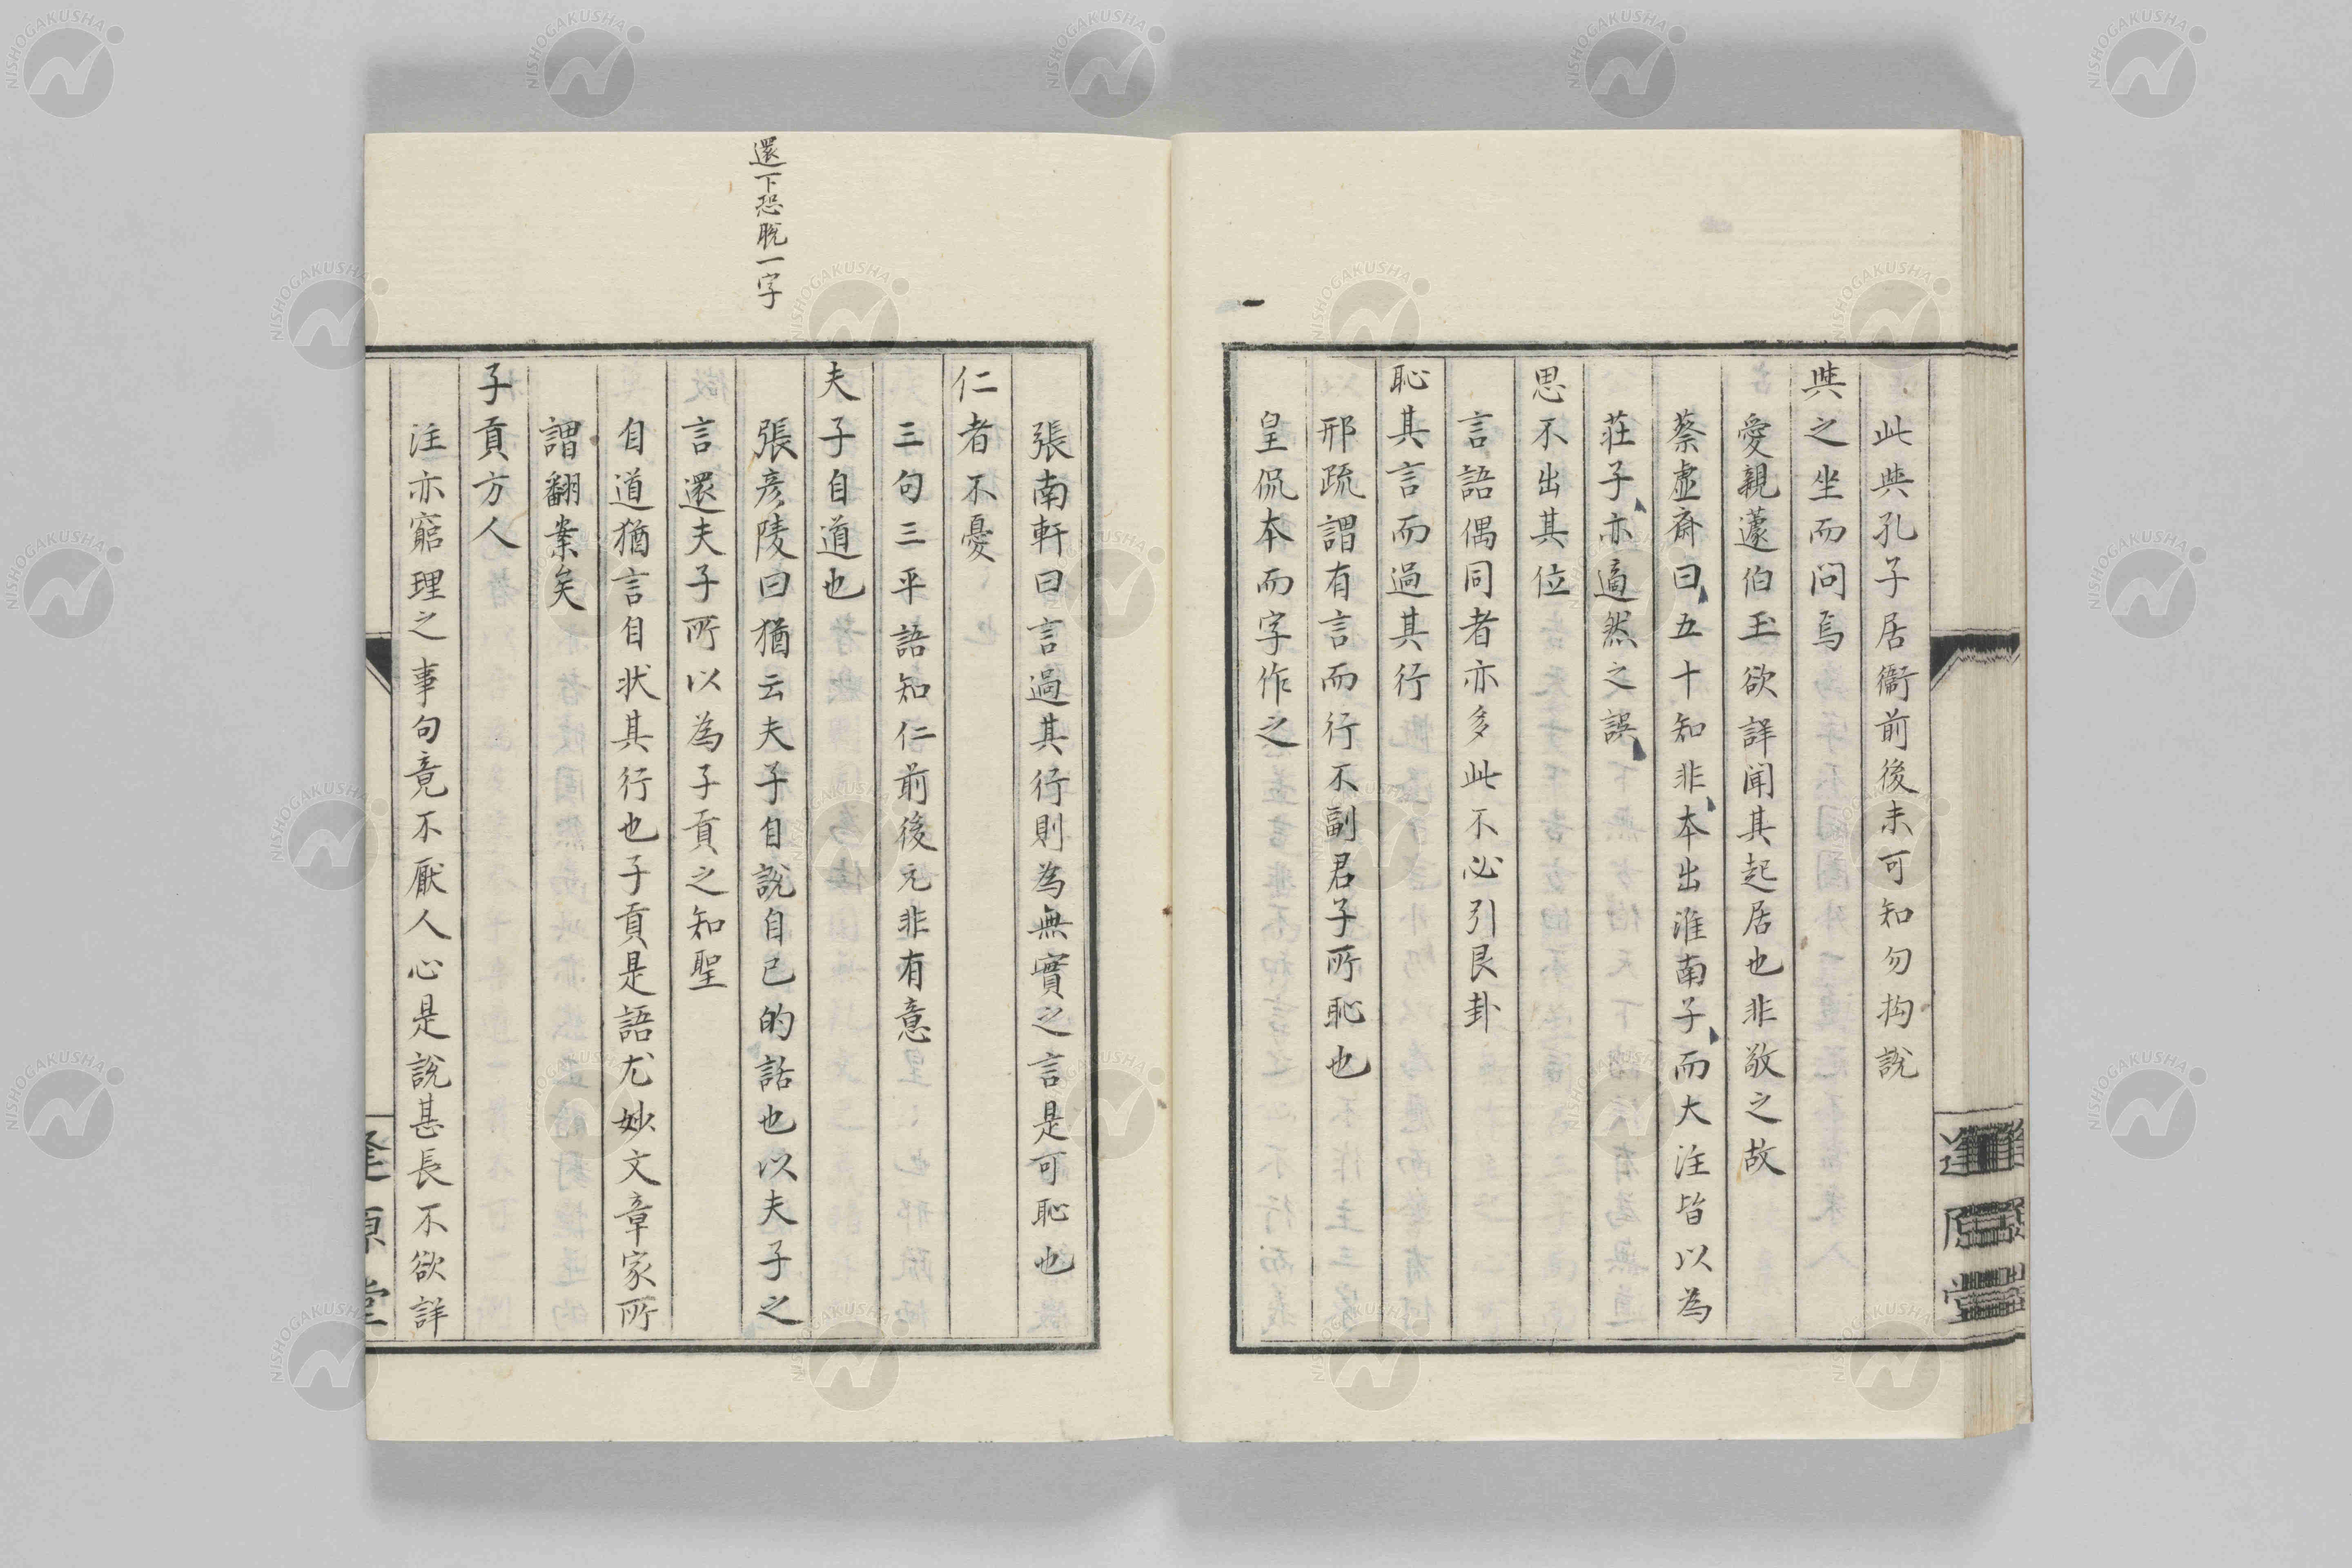 此與孔子居衞前後未可知勿拘說
與之坐而问焉
愛親蘧伯玉欲詳闻其起居也非敬之故
蔡虛齋曰五十知非本出淮南子而大注皆以為
莊子亦適然之誤
思不出其位
言語偶同者亦多此不必引艮卦
恥其言而過其行
邢疏謂有言而行不副君子所恥也
皇侃本而字作之
張南軒曰言過其行則為無實之言是可恥也
仁者不憂
三句三平語知仁前後元非有意
夫子自道也
還下恐脫一字
張彥陵曰猶云夫子自說自己的話也以夫子之
言還夫子所以為子貢之知聖
自道猶言自状其行也子貢是語尤妙文章家所
謂翻案矣
子貢方人
注亦窮理之事句竟不厭人心是說甚長不欲詳
逢原堂
NISHOGAKUSHA